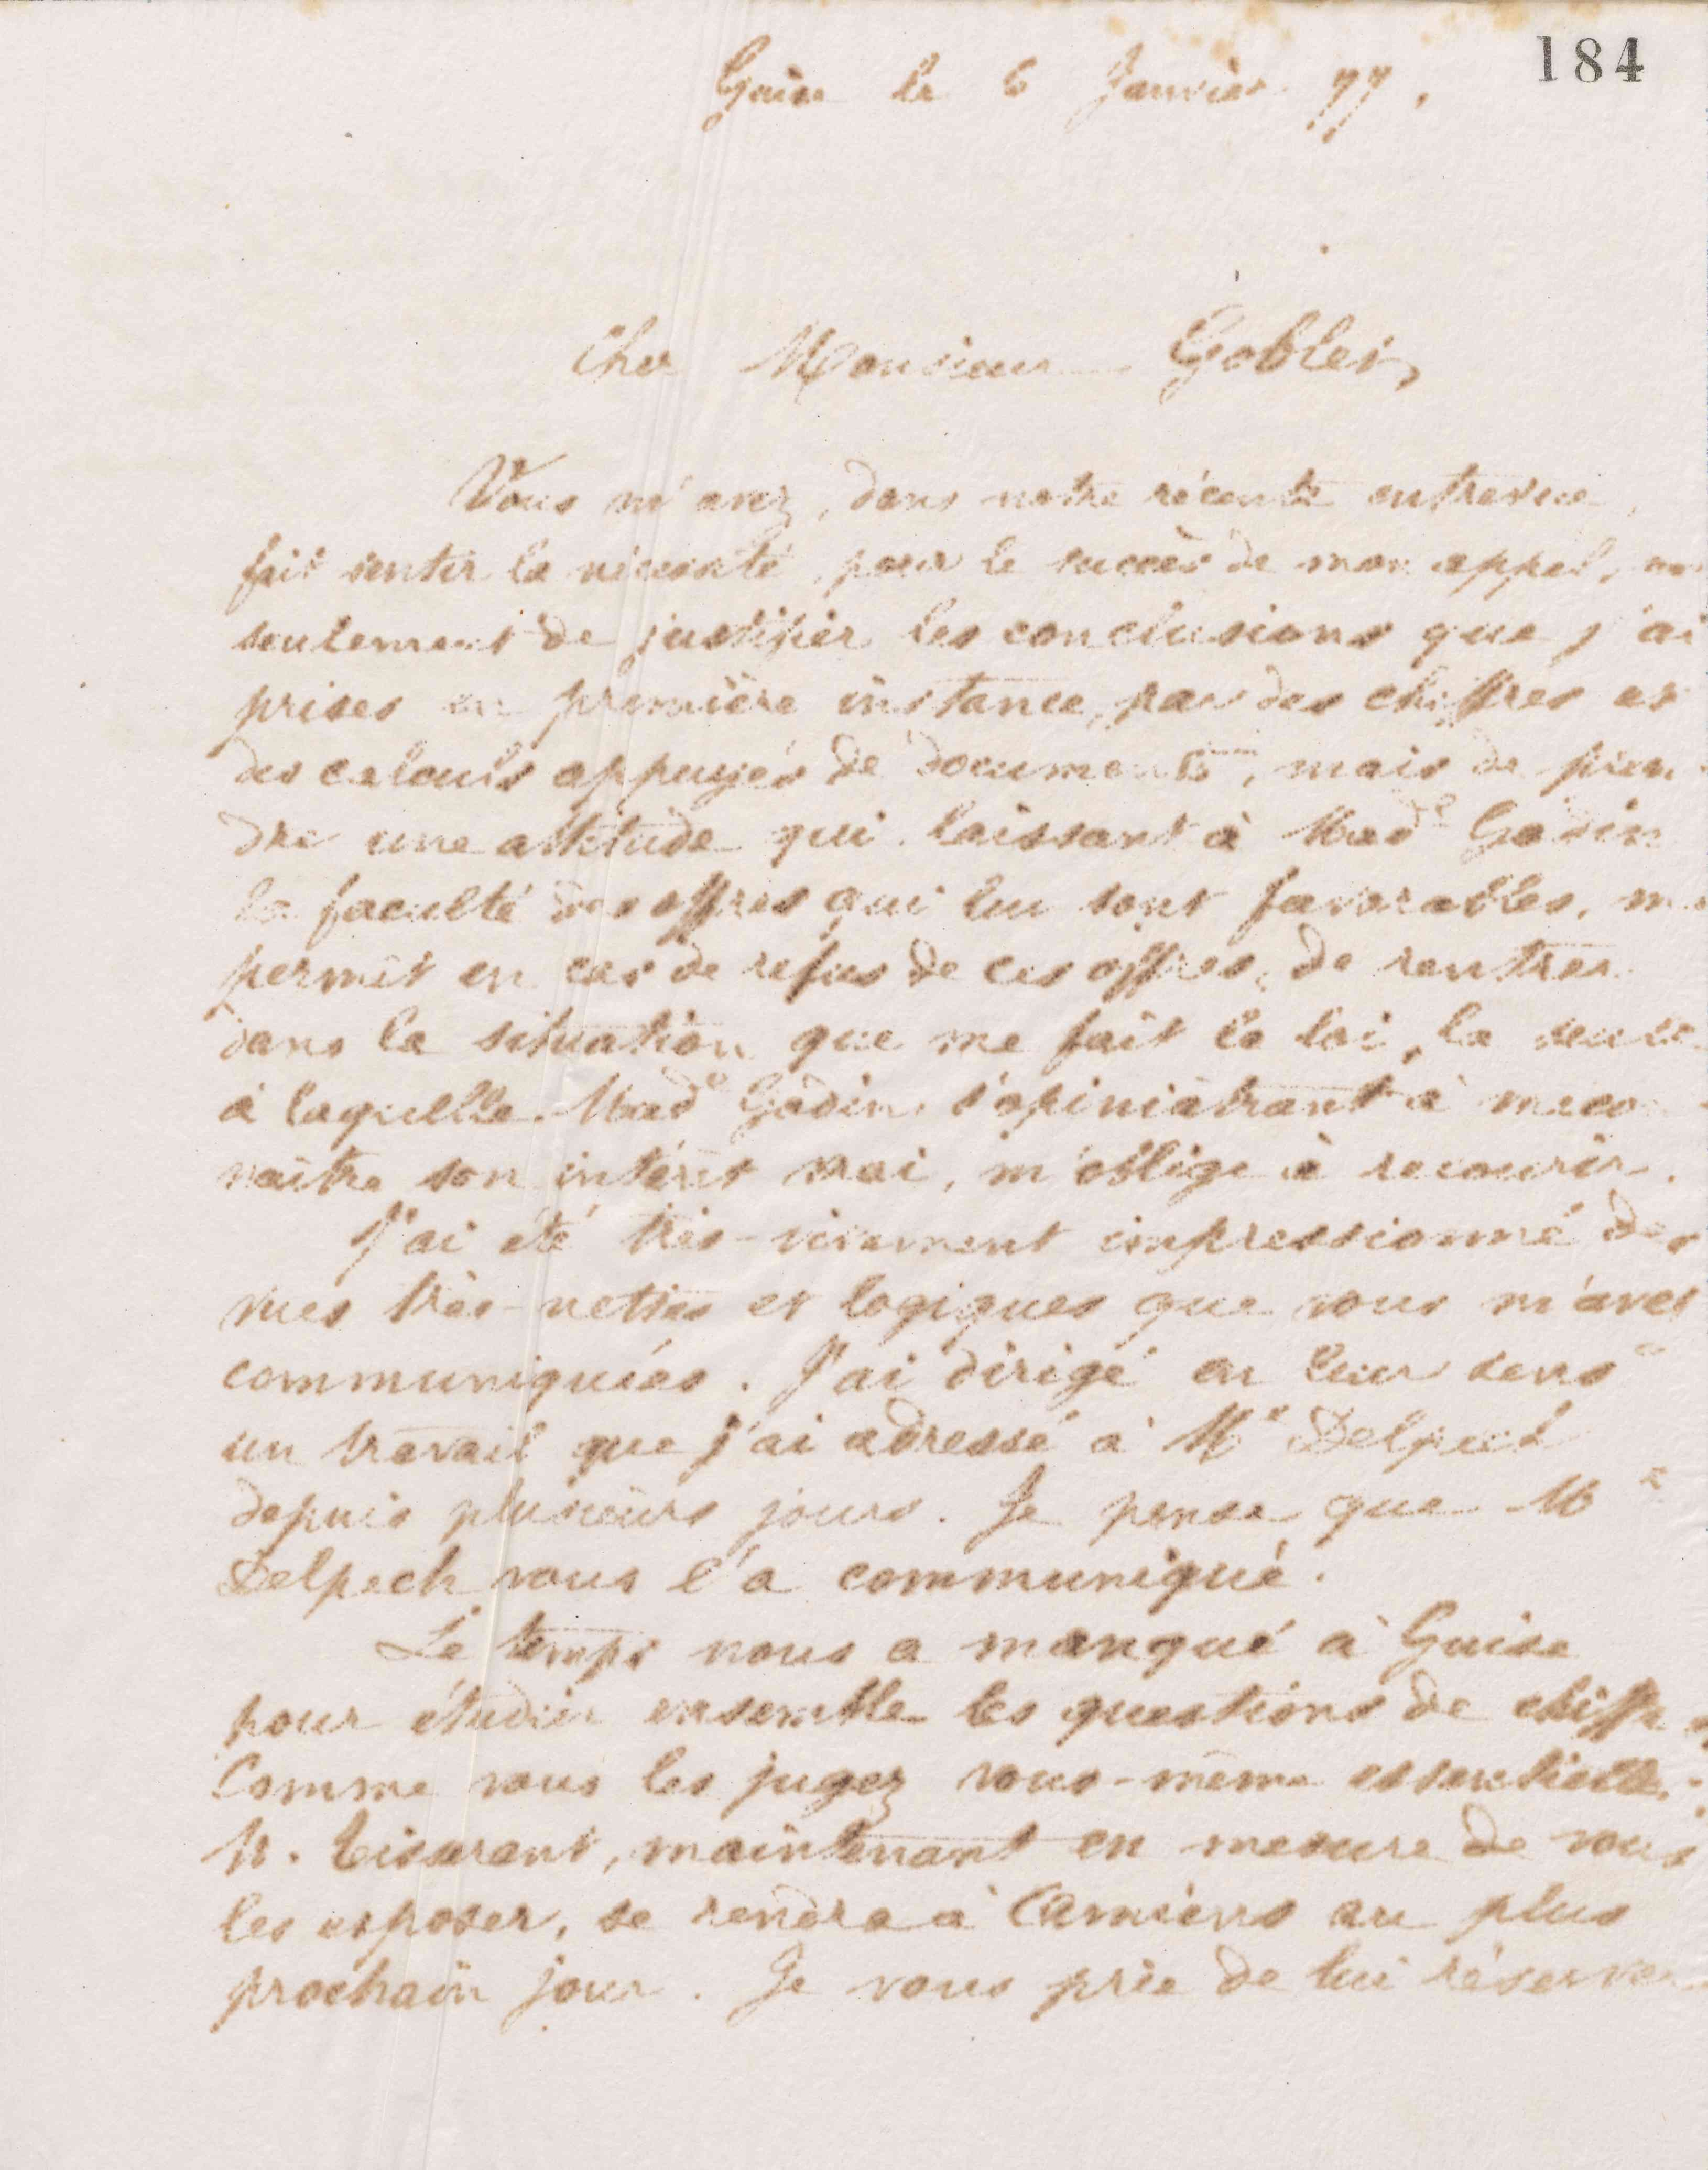 184
Guise le 6 Janvier 77.
Cher Monsieur Goblet,
Vous m'avez, dans notre récente entrevue,
fait sentir la nécessité, pour le succès de mon appel, non
seulement de justifier les conclusions que j'ai
prises en première instance, par des chiffres et
des calculs appuyés de documents, mais de pren-
dre une attitude qui laissant à Mad^e Godin
la faculté des offres qui lui sont favorables, me
permît en cas de refus de ces offres, de rentrer
dans la situation que me fait la loi, la seule
à laquelle Mad^e Godin, s'opiniâtrant à mécon-
naître son intérêt vrai, m'oblige à recourir.
J'ai été très-vivement impressionné des
vues très-nettes et logiques que vous m'avez
communiquées. J'ai dirigé en leur sens
un travail que j'ai adressé à M^e Delpech
depuis plusieurs jours. Je pense que M^e
Delpech vous l'a communiqué.
Le temps nous a manqué à Guise
pour étudier ensemble les questions de chiffres
Comme vous les jugez vous-même essentielles,
M. Tisserant, maintenant en mesure de vous
les exposer, se rendra à Amiens au plus
prochain jour. Je vous prie de lui réserver